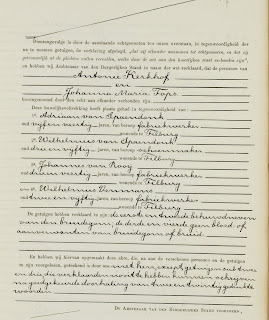 Dientengevolge is door de aanstaande echtgenooten ten onzen overstaan, in tegenwoordigheid der
na te noemen getuigen, de verklaring afgelegd, „dat zij elkander aannemen tot echtgenooten, en dat zij
getrouwelijk al de plichten zullen vervullen, welke door de wet aan den huwelijken staat verbonden zijn",
en hebben wij Ambtenaar van den Burgerlijken Stand in naam der wet verklaard, dat de personen van
Antonie Kerkhof
en
Johanna Maria Faps
bovengenoemd door den echt aan elkander verbonden zijn.
Deze huwelijksvoltrekking heeft plaats gehad in tegenwoordigheid van:
1°. Adrianus van Spaendonk
oud vijf en veertig jaren, van beroep fabriekwerker
wonende te Tilburg
2°. Wilhelmus van Spaendonk
oud drie en vijftig jaren, van beroep schoenmaker
wonende te Tilburg
3°. Johannes van Rooy
oud dertig jaren, van beroep fabriekwerker
wonende te Tilburg
en 4°. Wilhelmus
oud twee en vijftig jaren, van beroep fabriekwerker
wonende te Tilburg
De getuigen hebben verklaard te zijn de eerste en tweede behuwdneven
van den bruidegom, de derde en vierde geen bloed- of
aanverwanten van bruidegom of bruid.
En hebben wij hiervan opgemaakt deze akte, die, na aan de verschenen personen en de getuigen
te zijn voorgelezen, geteekend is door ons met hen, except getuigen een twee
en drie, die verklaarden niet te hebben kunnen schrijven
na goedgekeurde doorhaling van twee en twintig gedrukte
woorden.
De Ambtenaar van den Burgerlijken Stand voornoemd,